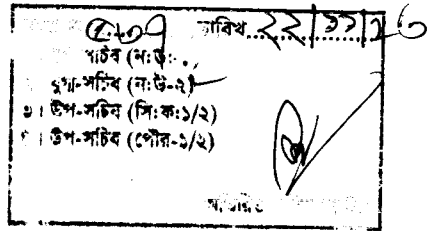 তারিখ ২২/১১/১৬
সচিব (ন:উ:
যুগ্ম-সচিব (ন:উ-২)
উপ-সচিব (সি:ক:১/২)
উপ-সচিব (পৌর-১/২)